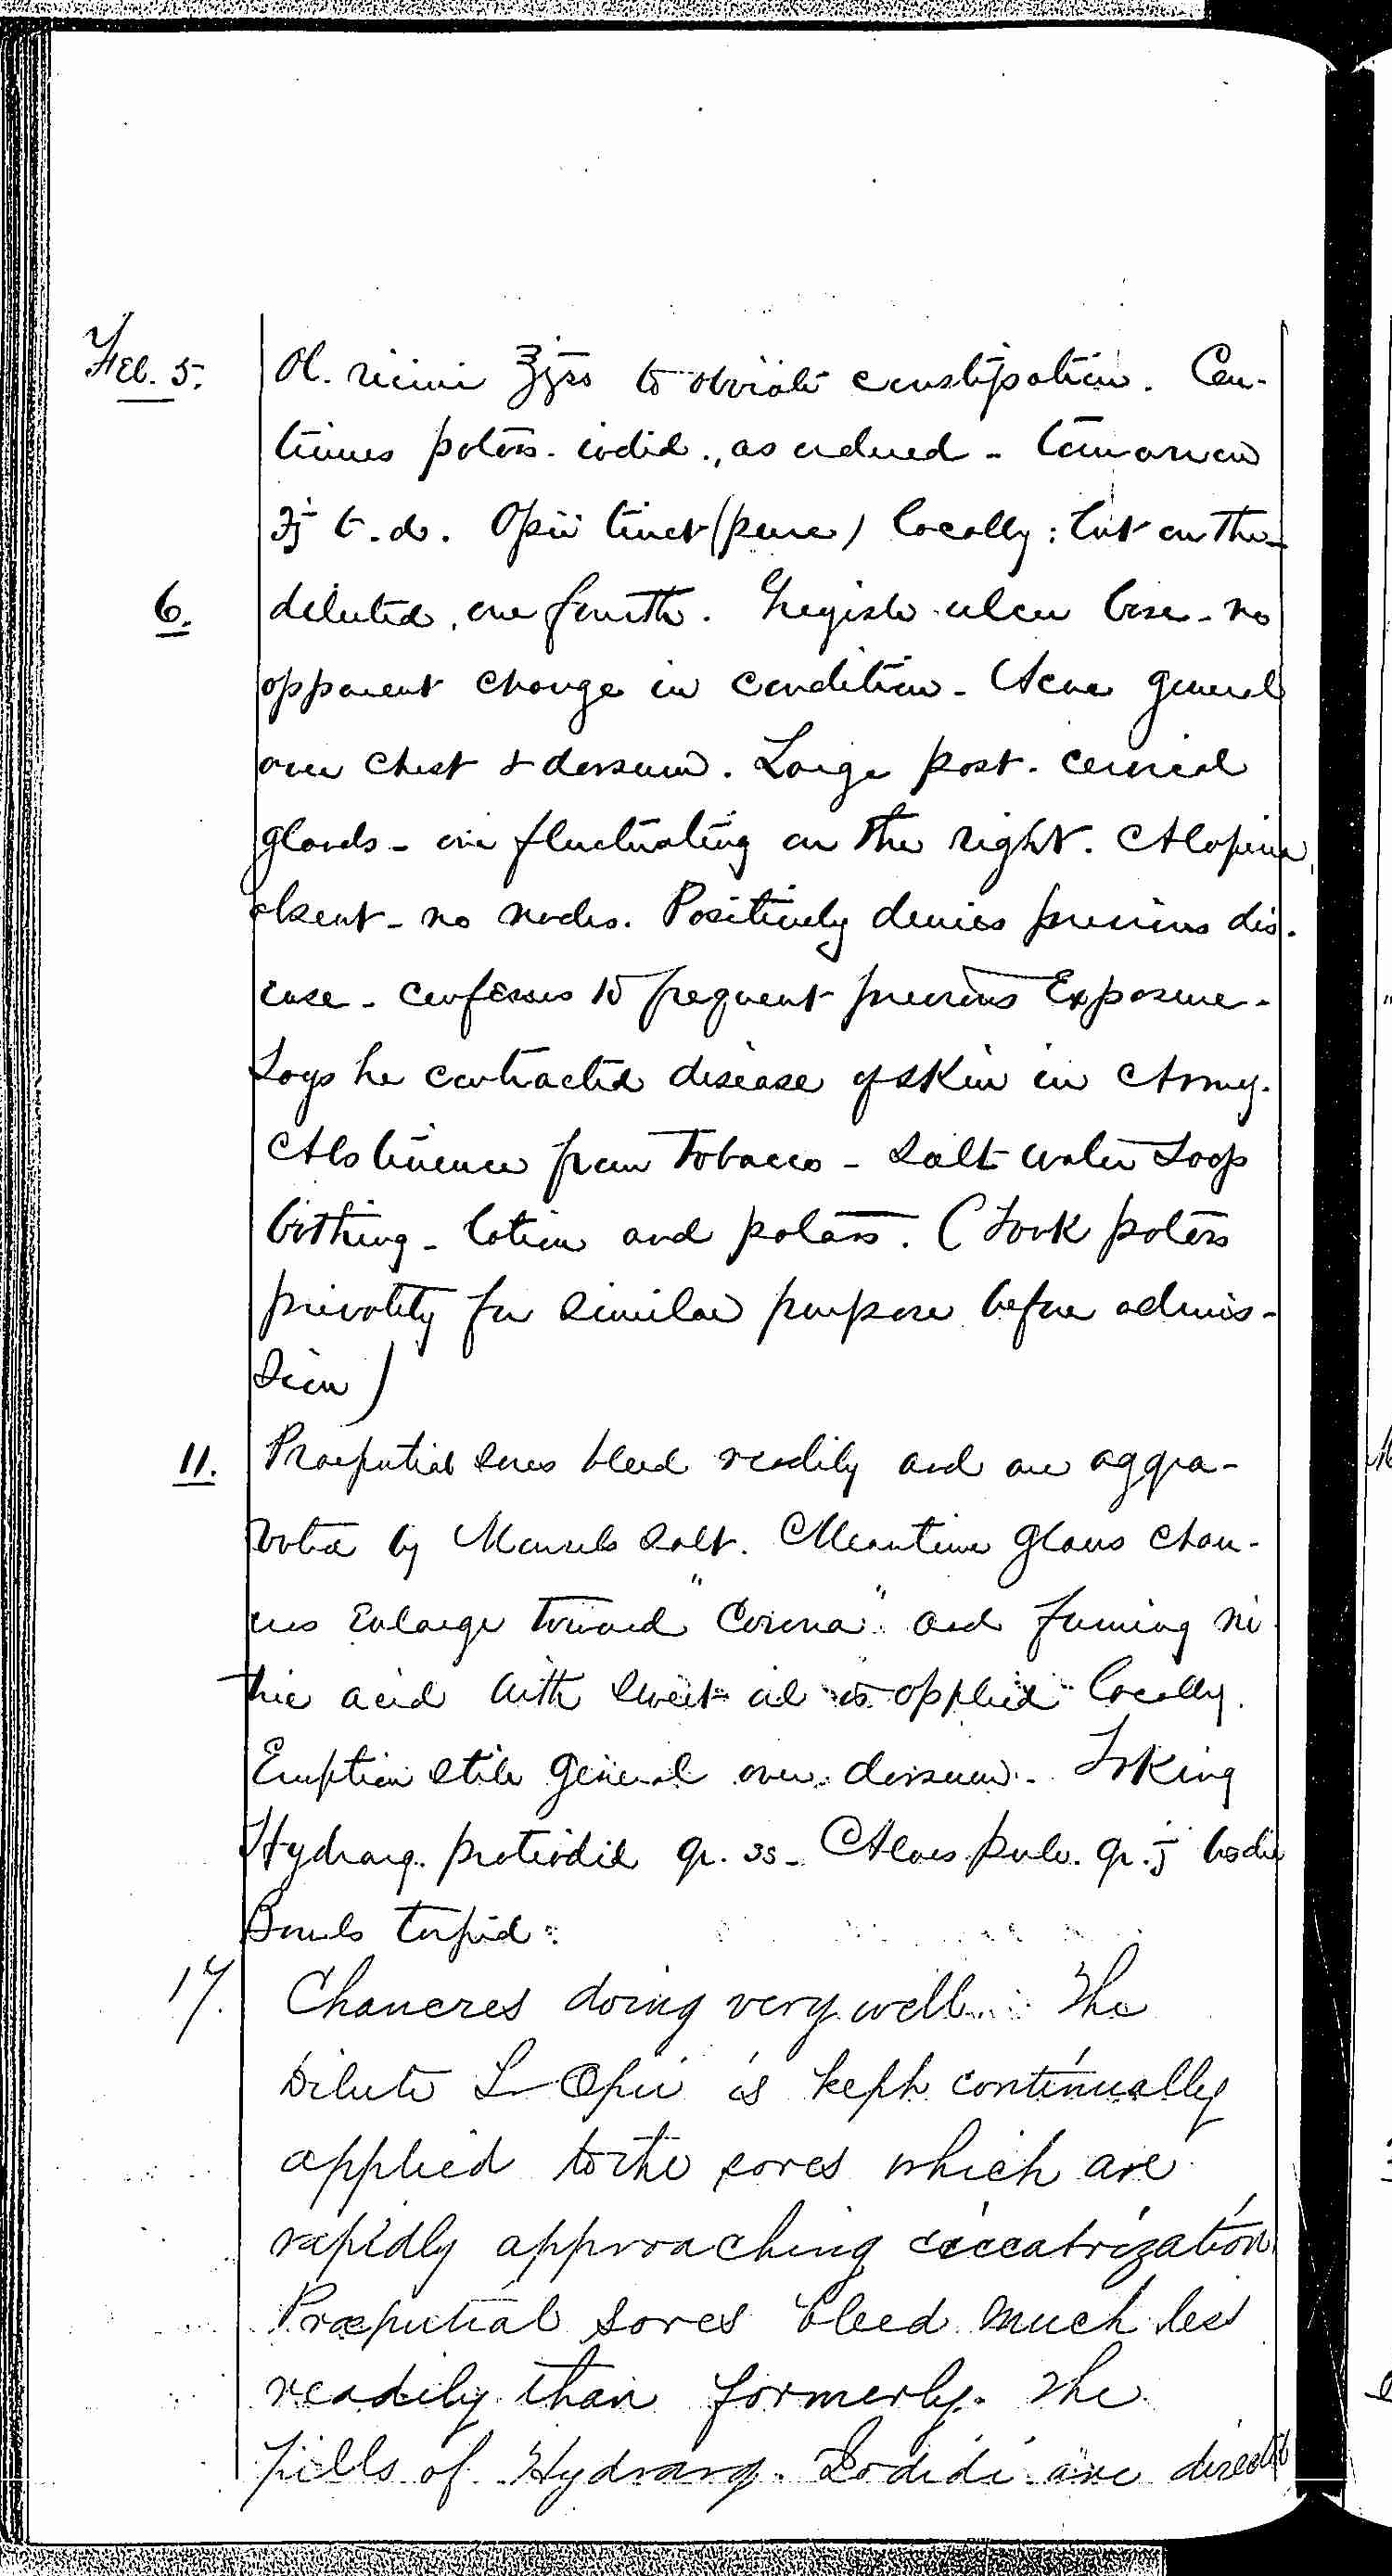 Feb. 5. Ol. ricini ℥jss to obviate constipation. Con-
tinues potass. iodid., as ordered - tomorrow
ʒj t.d. Opii tinct (pure) locally: lint on the
6. diluted, one fourth. ulcer base - no
apparent change in condition - Acne general
over chest & dorsum. Large post. cervical
glands - one fluctuating on the right. Alopecia
absent - no nodes. Positively denies previous dis-
ease - confesses to frequent previous Exposure -
Says he contracted disease of skin in Army.
Abstinence from Tobacco - Salt water Soap
bathing - lotion and potass. (Took potass
privately for similar purpose before admis-
sion)
11. Praeputial sores bleed readily and are aggra-
vated by Monsels salt. Meantime glans chan-
cres Enlarge toward "Corona" and fuming ni-
tric acid with sweet oil is applied locally.
Eruption still general over dorsum. Taking
Hydrarg. protiodid gr. ss - Aloes pulv. gr. j hodie
Bowels torpid:
17. Chancres doing very well. The
Dilute T Opii is kept continually
applied to the sores which are
rapidly approaching ciccatrization
Præputial sores bleed much less
readily than formerly. The
pills of Hydrarg. Iodidi are directed